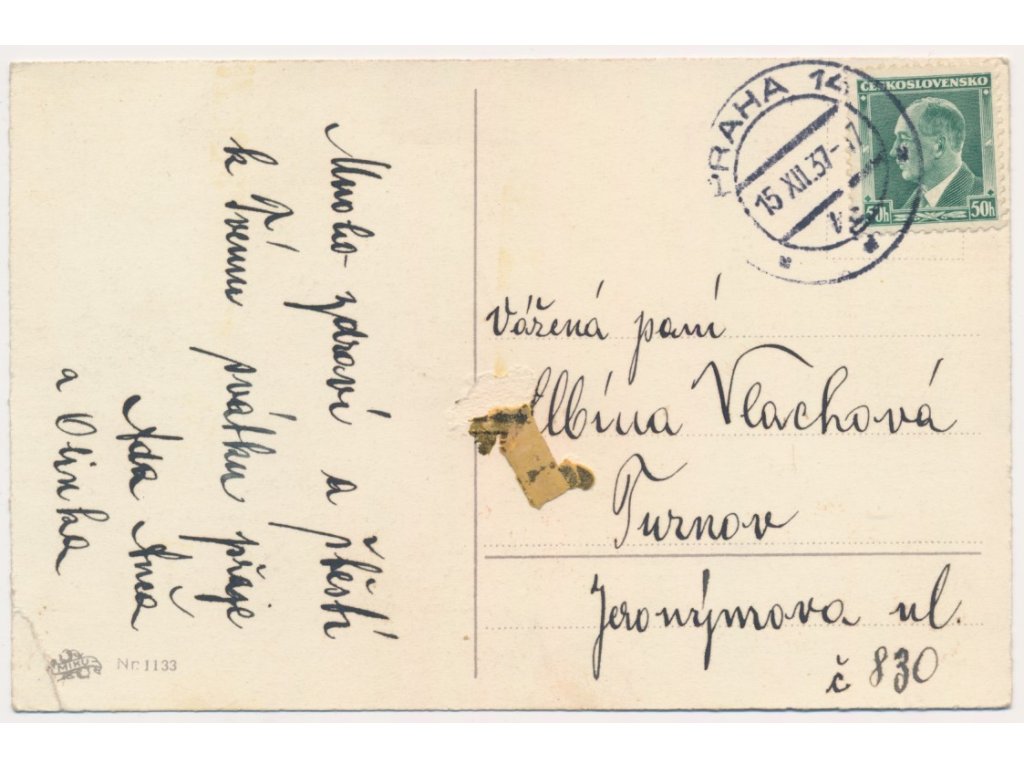 Mnoho zdraví a štěstí
k Tvému svátku přeje
Ada Anča
a Olinka
MIKU
Nr. 1133
PRAHA 14
15 XII.37
ČESKOSLOVENSKO
50h 50h
Vážená paní
Albína Vlachová
Turnov
Jeronýmova ul.
č 830